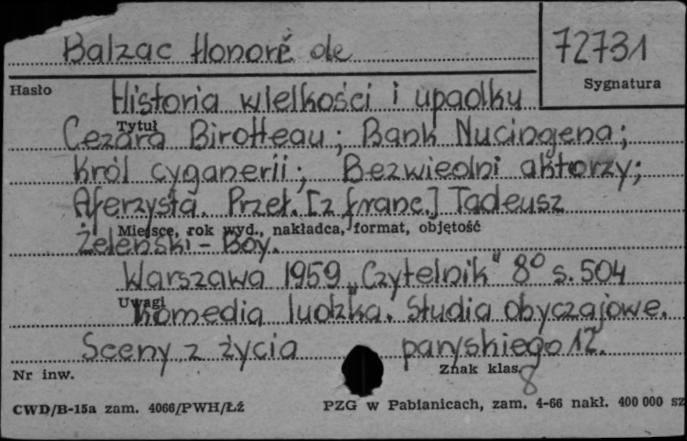 Balzac Honoré de
72731
Hasło
Sygnatura
Historia wielkości i upadku
Tytuł
Cezara Birotteau; Bank Nucingena;
Król cyganerii; Bezwiedni aktorzy;
Aferzysta. Przeł. [z franc.] Tadeusz
Miejsce, rok wyd., nakładca, format, objętość
Żeleński-Boy.
Warszawa 1959 „Czytelnik" 8° s. 504
Uwagi
Komedia ludzka. Studia obyczajowe.
Sceny z życia paryskiego 12.
Nr inw.
Znak klas.
8
CWD/B-15a zam. 4066/PWH/Łź
PZG w Pabianicach, zam. 4-66 nakł. 400 000 sz